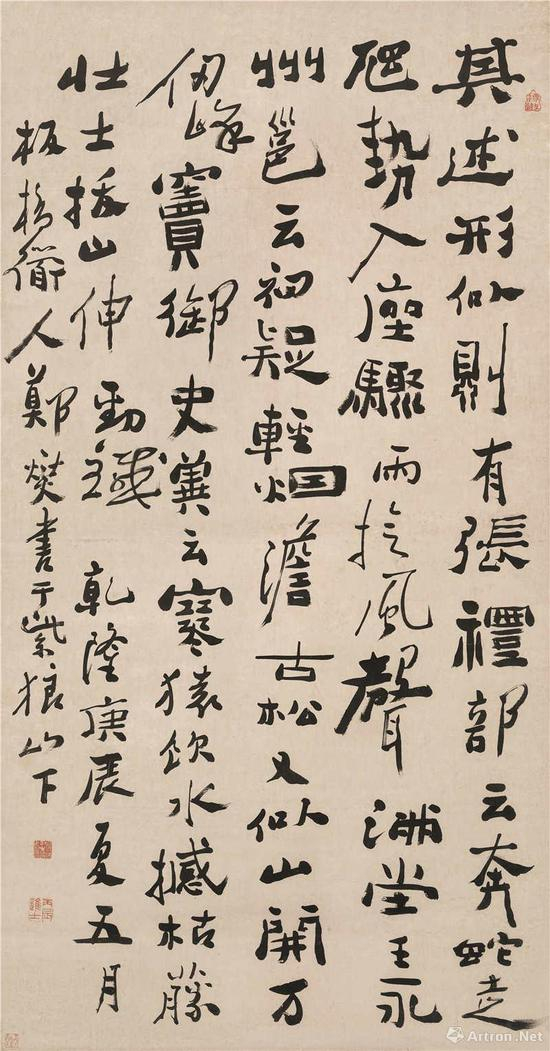 其述形似則有張禮部云奔蛇走
虺勢入座驟雨旋風聲滿堂王永
州邕云初疑輕烟澹古松又似山開万
仞峰竇御史冀云寒猿飲水撼枯藤
壯士拔山伸勁鐵 乾隆庚辰夏五月
板橋衟人鄭燮書于紫狼山下
Artron.Net